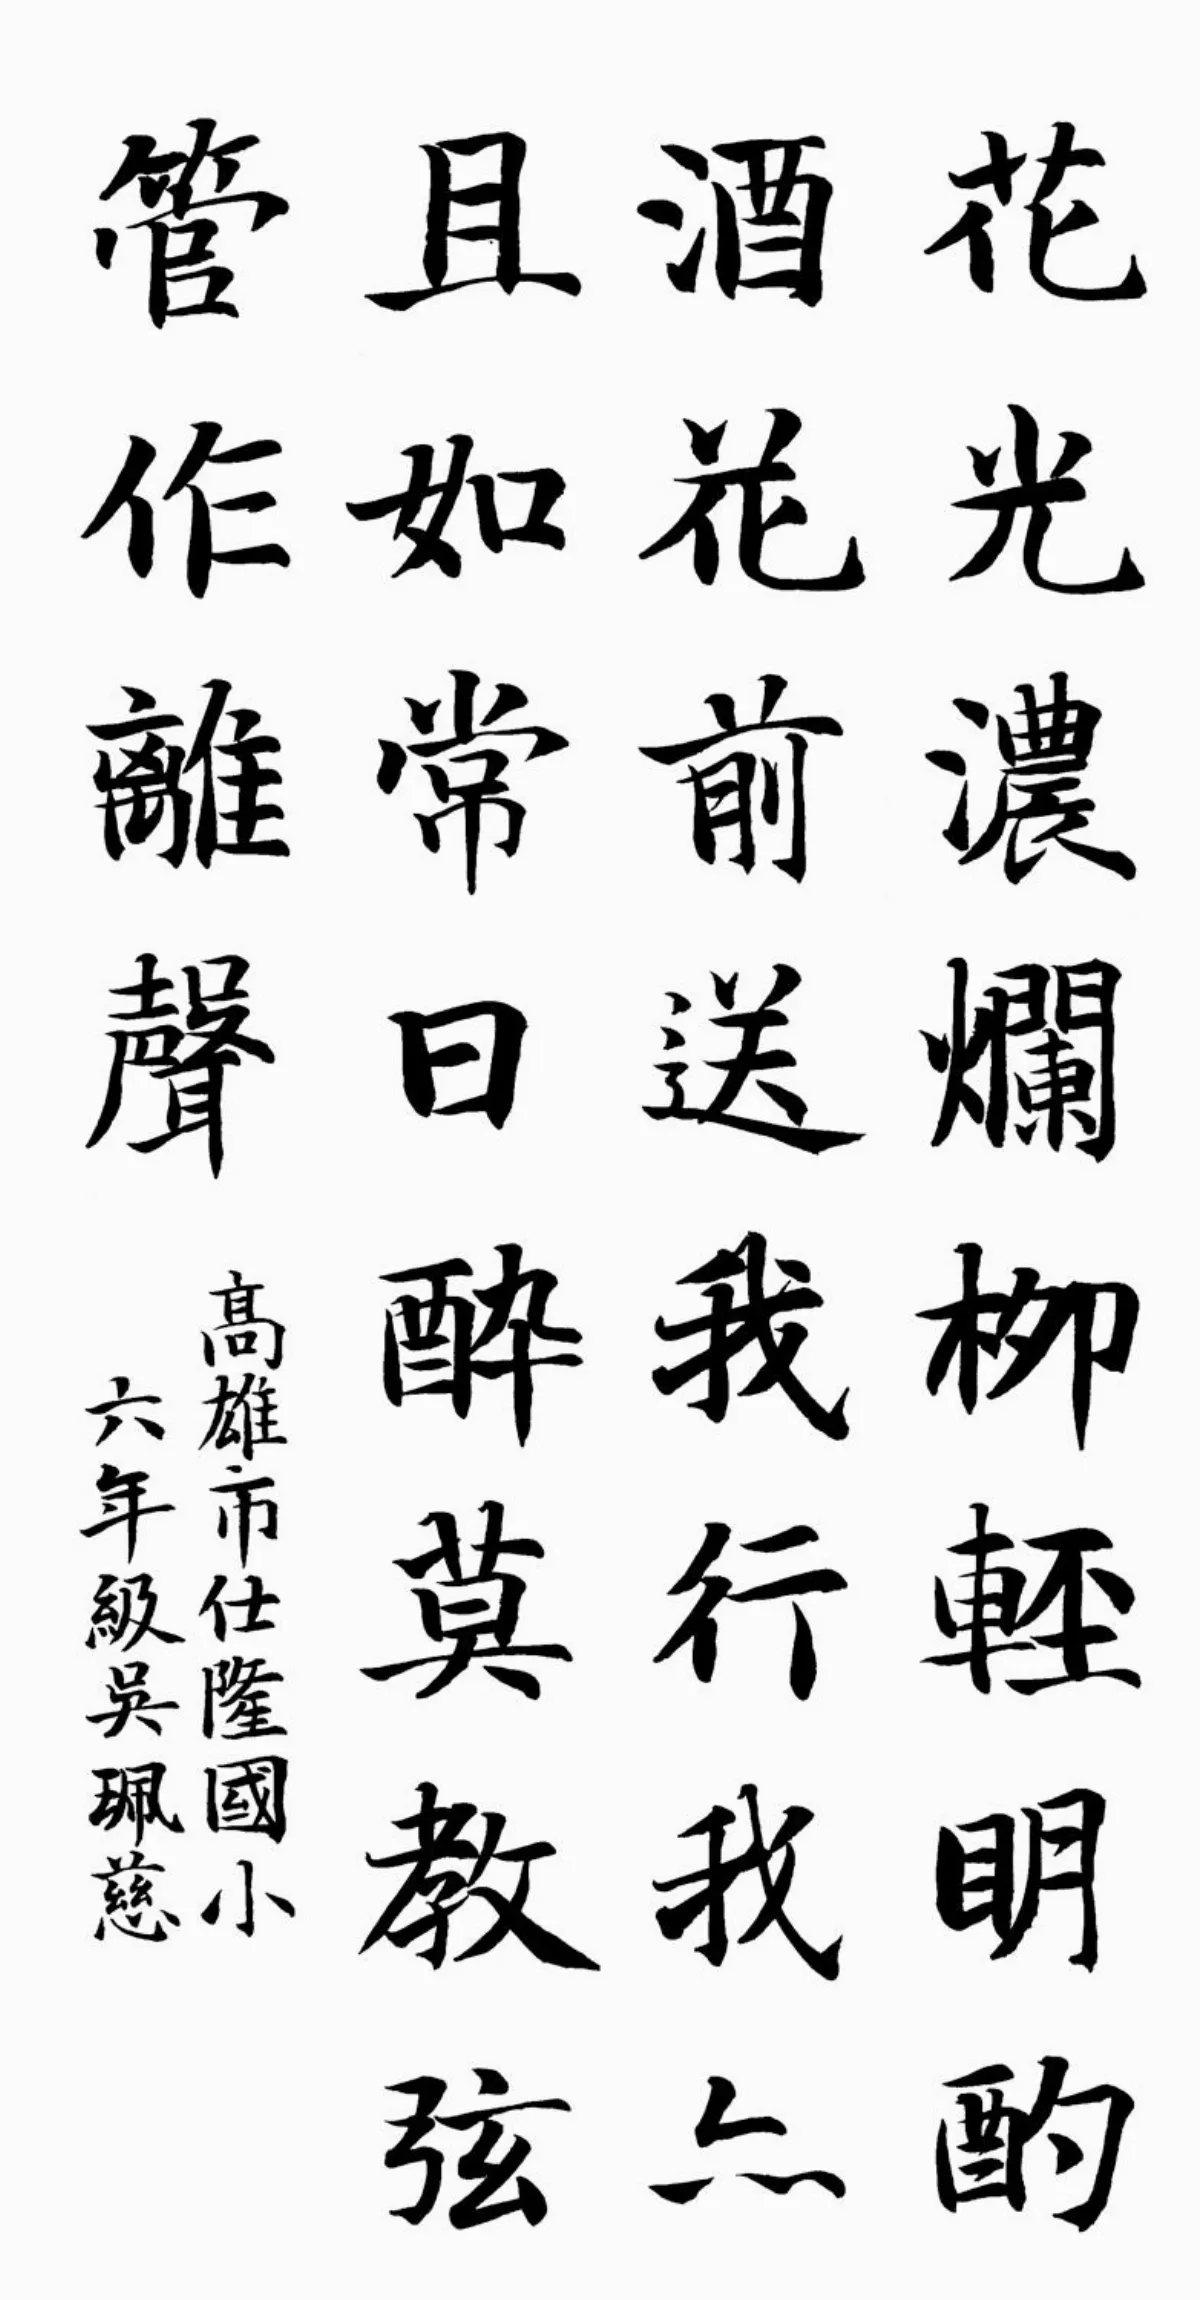 花光濃爛柳輕明酌
酒花前送我行我亦
且如常日醉莫教弦
管作離聲
高雄市仕隆國小
六年級吳珮慈